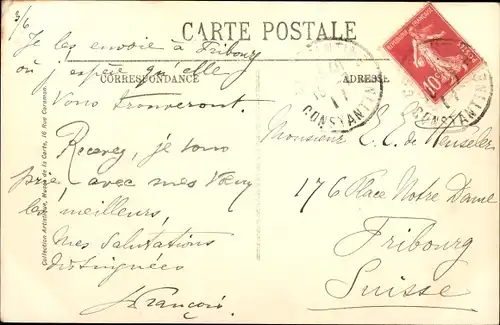 3/6
CARTE POSTALE
Je les envoie à Fribourg
où j'espère qu'elle
CORRESPONDANCE
Vous trouveront.
Recevez, je vous
prie, avec mes vœux
les meilleurs,
Mes Salutations
distinguées
François
Collection Artistique, Maison de la Carte, 16 Rue Caraman
ADRESSE
RÉPUBLIQUE FRANÇAISE
POSTES
10c
CONSTANTINE
CONSTANTINE
Monsieur E. E. de
176 Place Notre Dame
Fribourg
Suisse